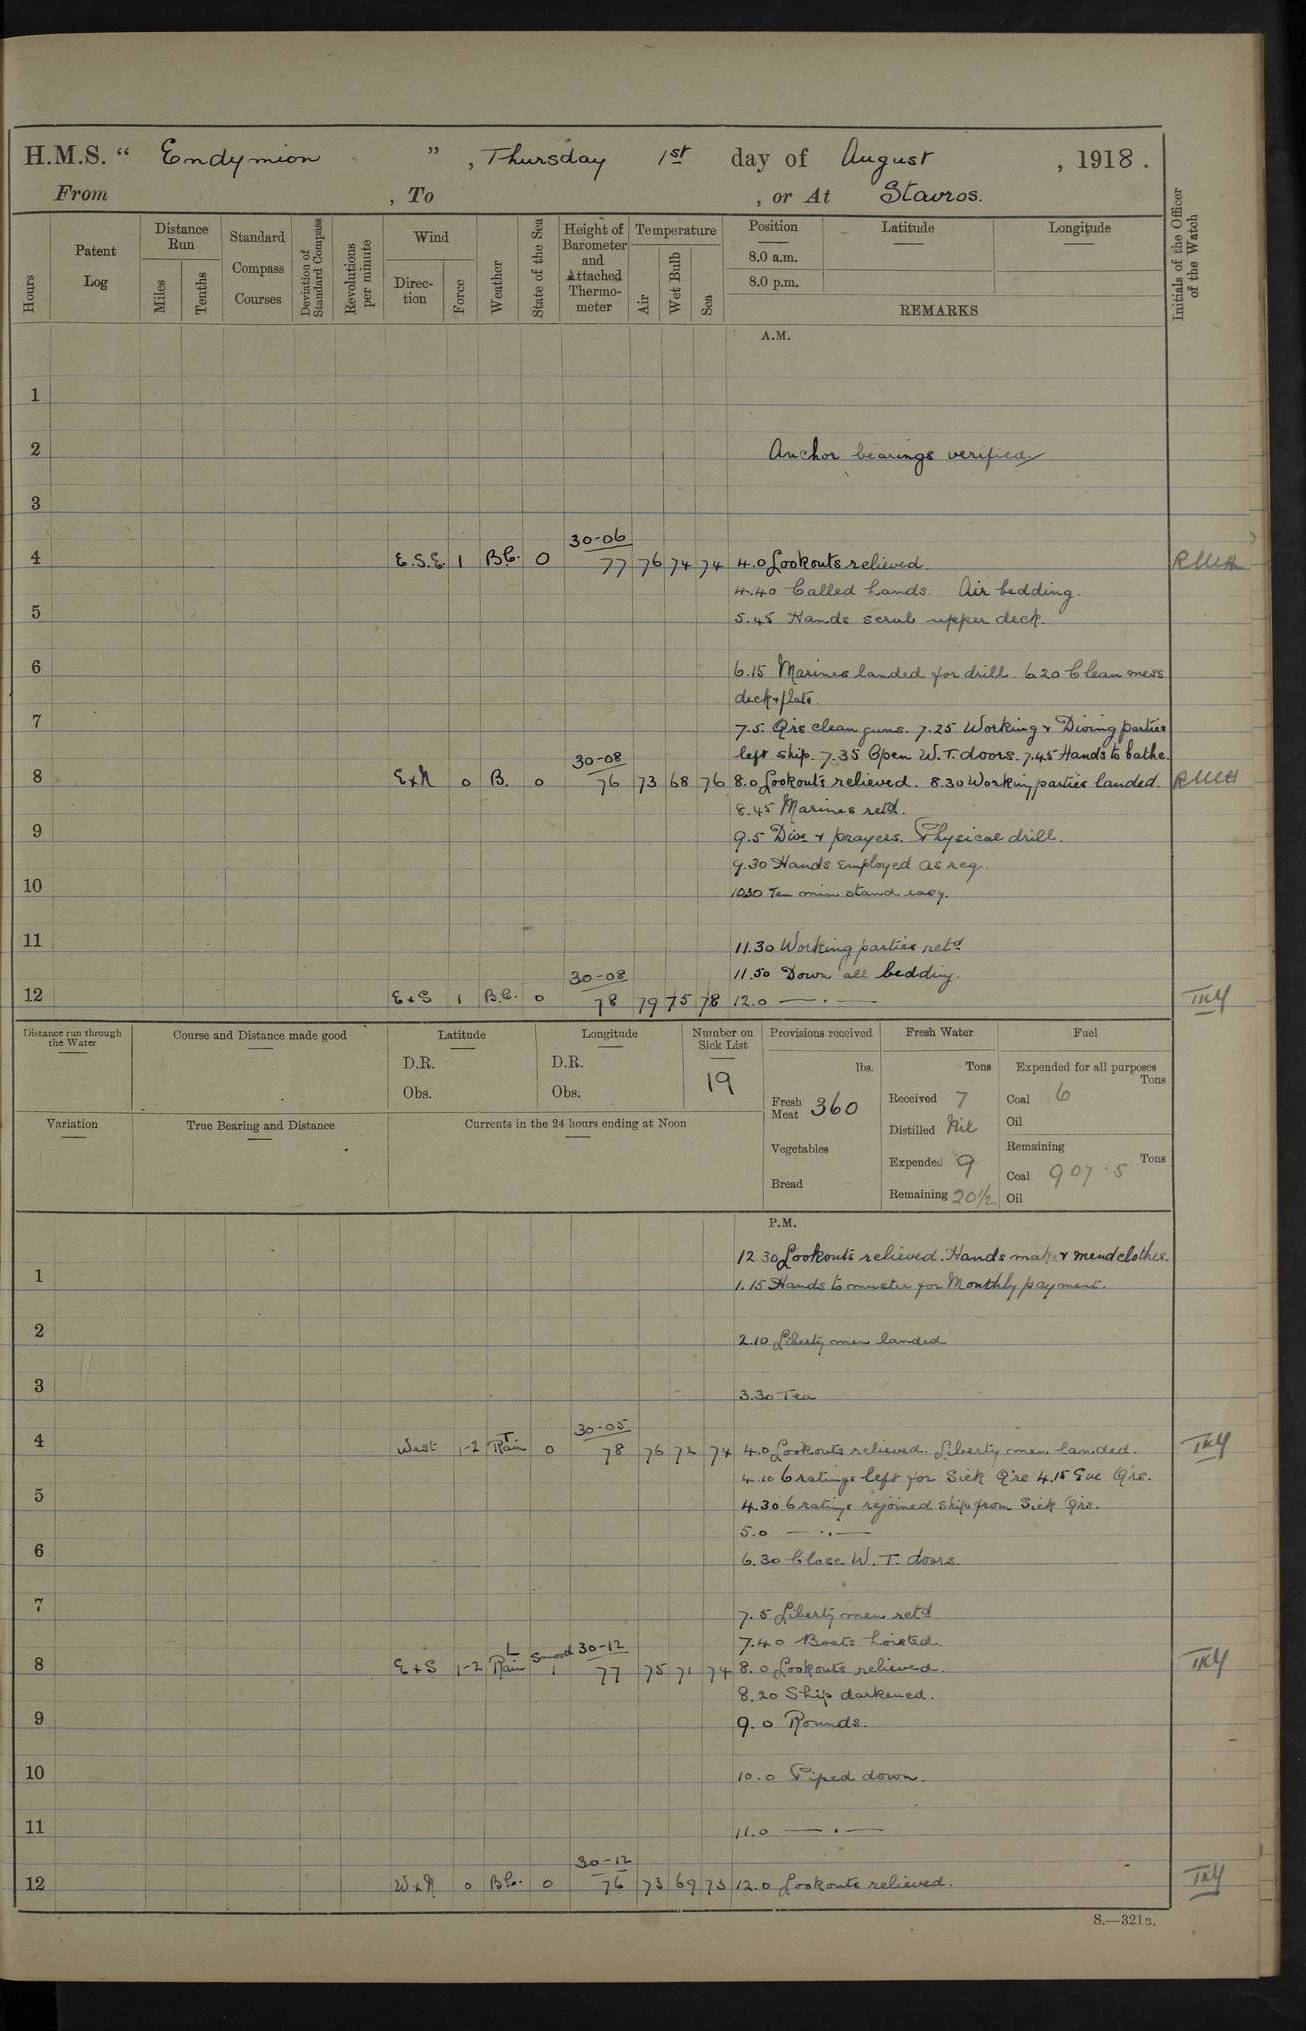 H.M.S. “ Endymion ” , Thursday 1st day of August , 1918 .
From , To , or At Stavros.
Hours
Patent Log
Distance Run
Miles
Tenths
Standard Compass Courses
Deviation of Standard Compass
Revolutions per minute
Wind
Direction
Force
Weather
State of the Sea
Height of Barometer and Attached Thermometer
Temperature
Air
Wet Bulb
Sea
Position
8.0 a.m.
8.0 p.m.
Latitude
Longitude
REMARKS
Initials of the Officer of the Watch
A.M.
1
2 Anchor bearings verified.
3
30-06
4 E.S.E. 1 B.C. 0 77 76 74 74 4.0 Lookouts relieved.
4.40 Called hands. Air bedding.
5
5.45 Hands scrub upper deck.
6
6.15 Marines landed for drill. 6.20 Clean mess
deck & flats.
7
7.5. Qrs clean guns. 7.25 Working & Diving parties
left ship. 7.35 Open W.T. doors. 7.45 Hands to bathe.
30-08
8 ExN 0 B. 0 76 73 68 76 8.0 Lookouts relieved. 8.30 Working parties landed.
8.45 Marines retd.
9
9.5 Divs & prayers. Physical drill.
9.30 Hands employed as req.
10
10.30 Ten min stand easy.
11
11.30 Working parties retd
11.50 Down all bedding.
30-08
12 ExS 1 B.C. 0 78 79 75 78 12.0 — · — TKY
Distance run through the Water
Course and Distance made good
Latitude
D.R.
Obs.
Longitude
D.R.
Obs.
Number on Sick List
19
Provisions received
lbs.
Fresh Meat 360
Vegetables
Bread
Fresh Water
Tons
Received 7
Distilled Nil
Expended 9
Remaining 201/2
Fuel
Expended for all purposes
Tons
Coal 6
Oil
Remaining
Tons
Coal 907.5
Oil
Variation
True Bearing and Distance
Currents in the 24 hours ending at Noon
P.M.
12 30 Lookouts relieved. Hands make & mend clothes.
1
1.15 Hands to muster for Monthly payment.
2
2.10 Liberty men landed
3
3.30 Tea
30-05
4 West 1-2 T Rain 0 78 76 72 74 4.0 Lookouts relieved. Liberty men landed. TKY
4.10 6 ratings left for Sick Qrs 4.15 Eve Qrs.
5
4.30 6 ratings rejoined ship from Sick Qrs.
5.0 — · · —
6
6.30 Close W.T. doors.
7
7.5 Liberty men retd
7.40 Boats hoisted.
30-12
8 ExS 1-2 L Rain Smooth 1 77 75 71 74 8.0 Lookouts relieved. TKY
8.20 Ship darkened.
9
9.0 Rounds.
10
10.0 Piped down.
11
11.0 — · —
30-12
12 WxN 0 B.C. 0 76 73 69 73 12.0 Lookouts relieved. TKY
S.—321B.